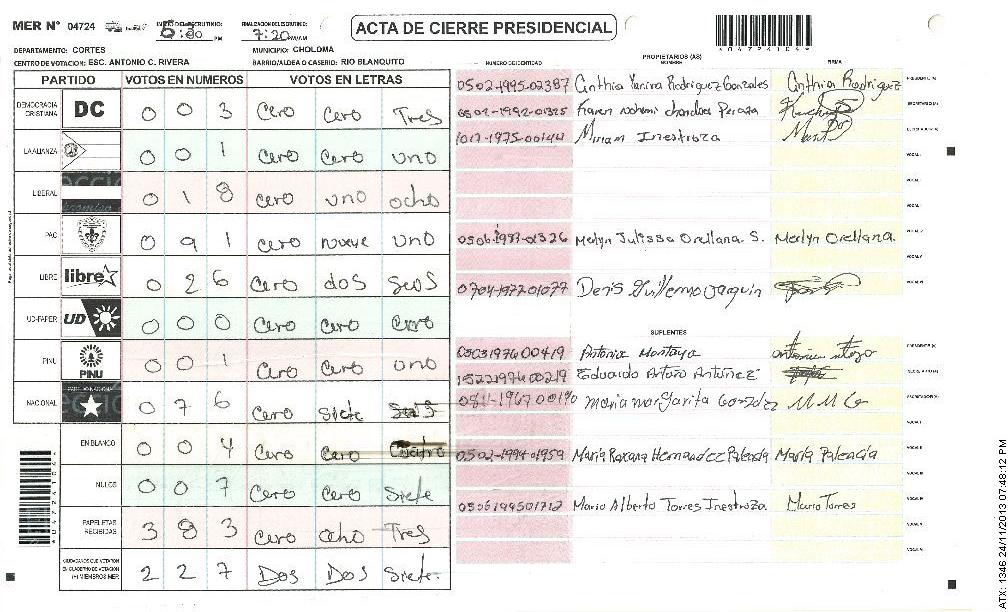 MER N° 04724
ACTA DE CIERRE PRESIDENCIAL
7:20 PM/AM
DEPARTAMENTO: CORTES MUNICIPIO: CHOLOMA
CENTRO DE VOTACION: ESC. ANTONIO C. RIVERA BARRIO/ALDEA O CASERIO: RIO BLANQUITO
PARTIDO VOTOS EN NUMEROS VOTOS EN LETRAS
DEMOCRACIA CRISTIANA DC 0 0 3 Cero Cero Tres
LA ALIANZA 0 0 1 Cero Cero uno
LIBERAL 0 1 8 Cero uno ocho
PAC 0 9 1 Cero nueve uno
LIBRE libre 0 2 6 Cero dos Seis
UD-FAPER UD 0 0 0 Cero Cero Cero
PINU PINU 0 0 1 Cero Cero uno
NACIONAL 0 7 6 Cero Siete Seis
EN BLANCO 0 0 4 Cero Cero Cuatro
NULOS 0 0 7 Cero Cero Siete
PAPELETAS RECIBIDAS 3 8 3 Cero Ocho Tres
CIUDADANOS QUE VOTARON EN CUADERNO DE VOTACION (+) MIEMBROS MER 2 2 7 Dos Dos Siete.
PROPIETARIOS (AS)
NUMERO DE IDENTIDAD NOMBRE FIRMA
0502-1995-02387 Cinthia Yanira Rodriguez Gonzales Cinthia Rodriguez PRESIDENTE (A)
0502-1992-01325 Karen Nohemi Peraza SECRETARIO (A)
1017-1975-00144 Miriam Inestroza
VOCAL I
0506-1997-01326 Merlyn Julissa Orellana. S. Merlyn Orellana.
0704-1977-01077 Denis Guillermo
SUPLENTES
0503197600419 Antonia Montoya PRESIDENTE (A)
1522197600219 Eduardo Arturo Antunez SECRETARIO (A)
maria margarita M M G
0502-1994-01959 María Roxana Hernandez Palencia María Palencia
0506199501712 Mario Alberto Torres Inestroza. Mario Torres
04724104
ATX: 1346 24/11/2013 07:48:12 PM